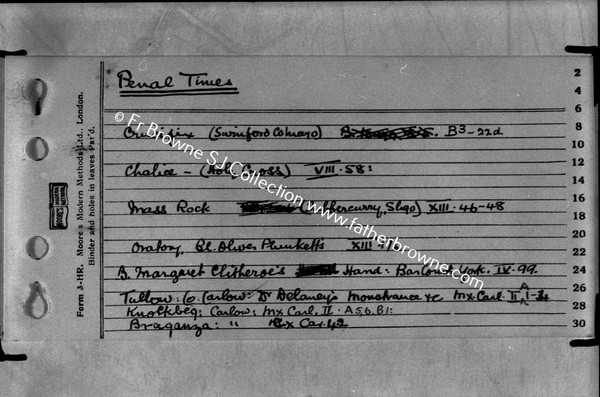 Penal Times
Crucifix (Swinford Co Mayo) B3-22d
Chalice - (Holy Cross) VIII.58:
Mass Rock (Tubbercurry, Sligo) XIII.46-48
Oratory, Bl. Oliver Plunketts XIII
B. Margaret Clitheroe's Hand: Bar Cont York. IV.99.
Tullow: Co. Carlow: Dr Delaney's Monstrance &c Mx Carl. II
Knockbeg: Carlow: Mx Carl. II. A56.B1:
Braganza: " Mx Car. 42
2
4
6
8
10
12
14
16
18
20
22
24
26
28
30
Form 3-HR. Moore's Modern Methods Ltd., London.
Binder and holes in leaves Pat'd.
© Fr Browne S.J. Collection www.fatherbrowne.com